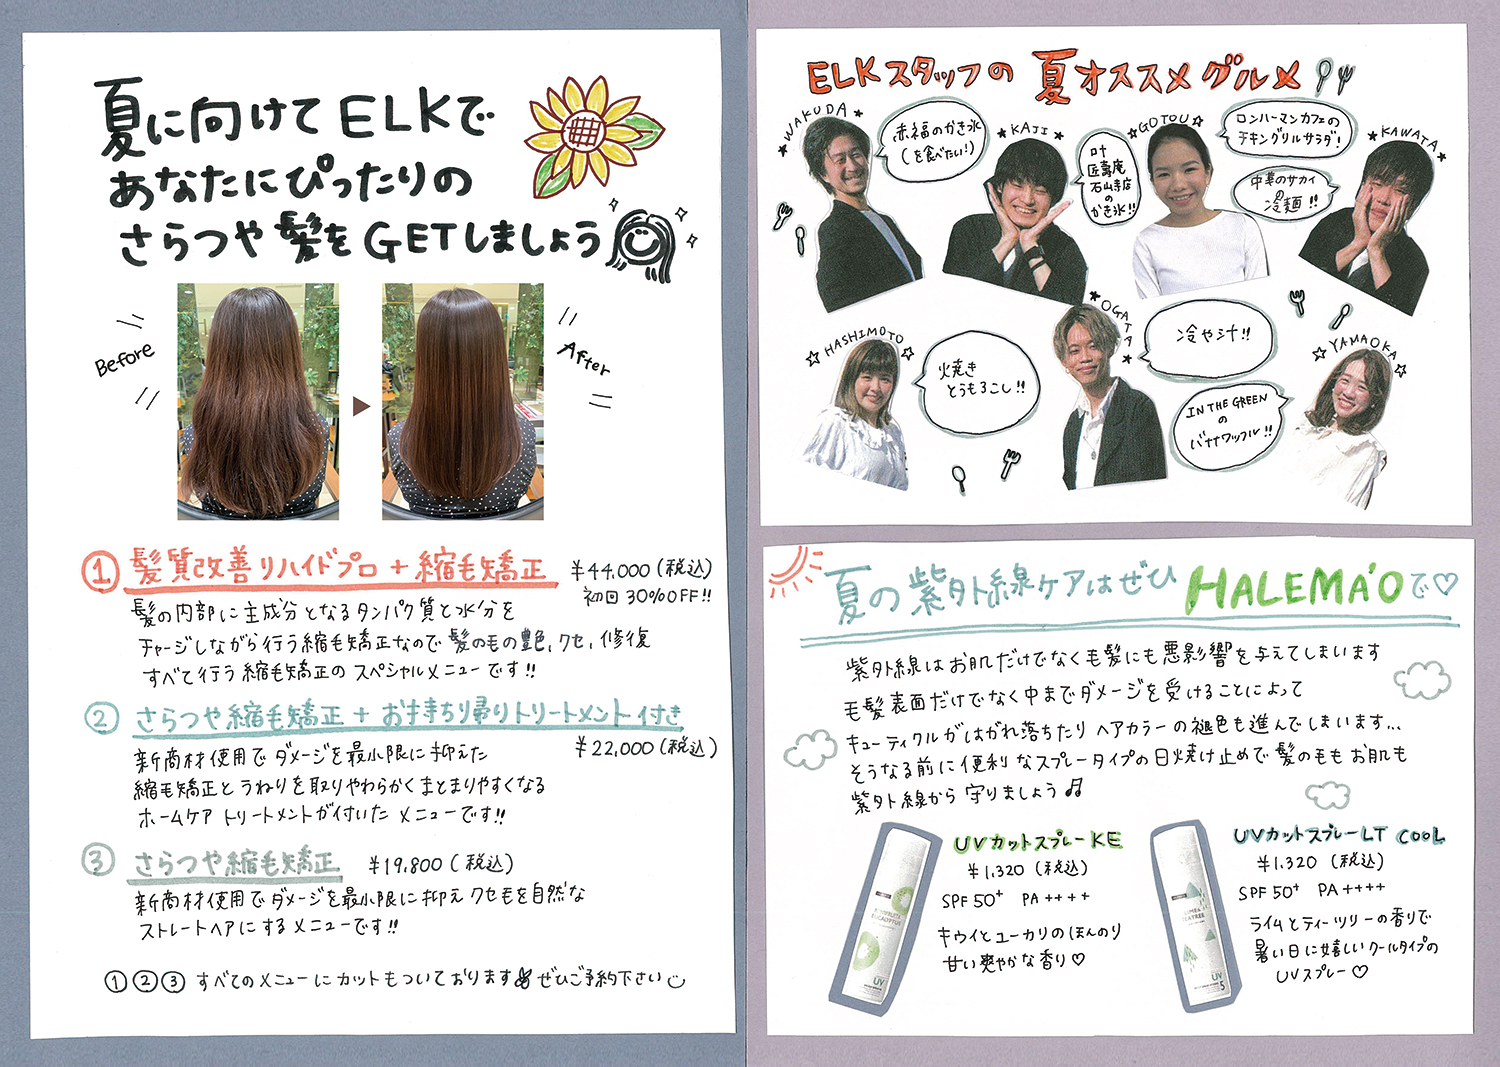 夏に向けてELKで
あなたにぴったりの
さらつや髪をGETしましょう
Before
After
① 髪質改善リハイドプロ + 縮毛矯正
¥44,000(税込)
初回30%OFF!!
髪の内部に主成分となるタンパク質と水分を
チャージしながら行う縮毛矯正なので髪の毛の艶、クセ、修復
すべて行う縮毛矯正のスペシャルメニューです!!
② さらつや縮毛矯正 + お手持ち帰りトリートメント付き
¥22,000(税込)
新商材使用でダメージを最小限に抑えた
縮毛矯正とうねりを取りやわらかくまとまりやすくなる
ホームケアトリートメントが付いたメニューです!!
③ さらつや縮毛矯正 ¥19,800(税込)
新商材使用でダメージを最小限に抑えクセ毛を自然な
ストレートヘアにするメニューです!!
①②③すべてのメニューにカットもついております ぜひご予約下さい
ELKスタッフの夏オススメグルメ
WAKUDA
赤福のかき氷
(を食べたい!)
KAJI
叶
匠壽庵
石山寺店
の
かき氷!!
GOTOU
ロンハーマンカフェの
チキングリルサラダ!
KAWATA
中華のサカイ
の
冷麺!!
HASHIMOTO
焼き
とうもろこし!!
OGATA
冷や汁!!
YAMAOKA
IN THE GREEN
の
バナナワッフル!!
夏の紫外線ケアはぜひHALEMA'Oで♡
紫外線はお肌だけでなく毛髪にも悪影響を与えてしまいます
毛髪表面だけでなく中までダメージを受けることによって
キューティクルがはがれ落ちたりヘアカラーの褪色も進んでしまいます...
そうなる前に便利なスプレータイプの日焼け止めで髪の毛もお肌も
紫外線から守りましょう♫
UVカットスプレーKE
¥1,320(税込)
SPF50⁺ PA++++
キウイとユーカリのほんのり
甘い爽やかな香り♡
UV
UVカットスプレーLT COOL
¥1,320(税込)
SPF50⁺ PA++++
ライムとティーツリーの香りで
暑い日に嬉しいクールタイプの
UVスプレー♡
UV
5